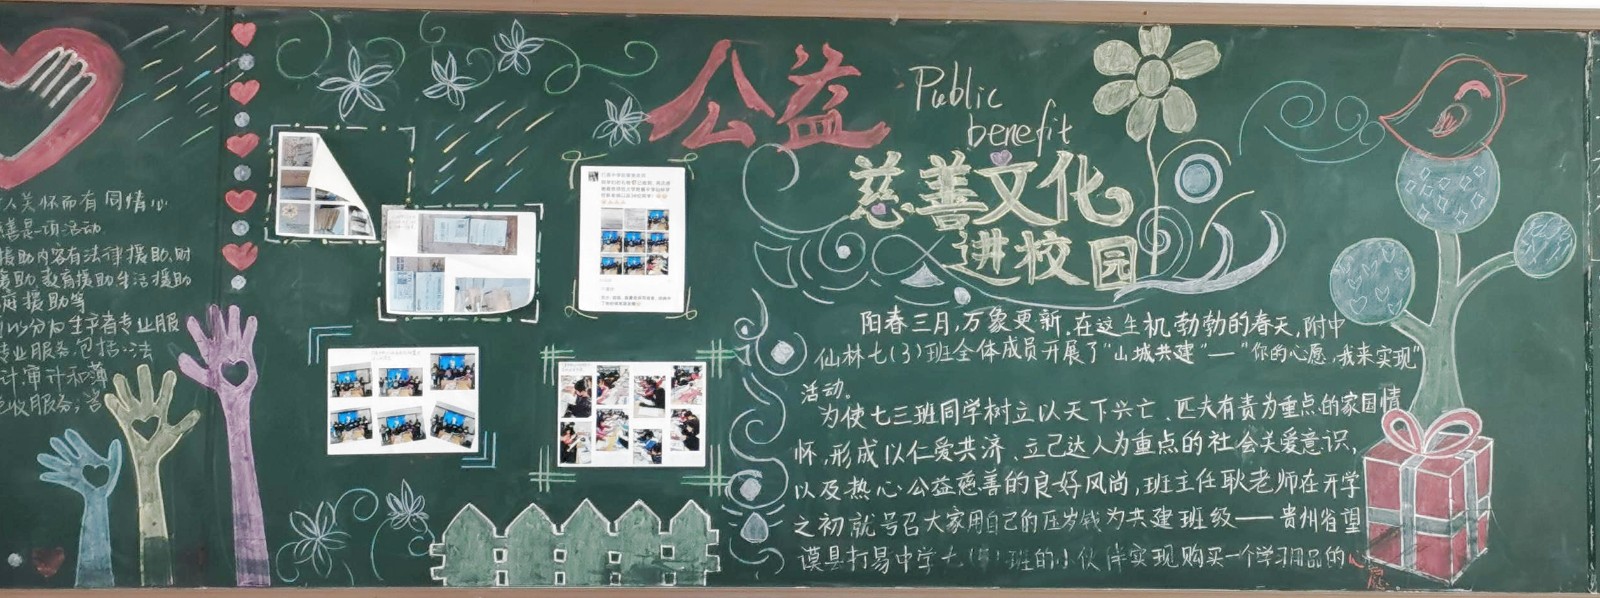 人关怀而有同情心
慈善是一项活动
援助内容有法律援助、财
援助、教育援助生活援助
庭援助等
以分为生产者专业服
专业服务包括:法
计审计和簿
税收服务;咨
公益
Public
benefit
慈善文化
进校园
阳春三月,万象更新,在这生机勃勃的春天,附中
仙林七(3)班全体成员开展了“山城共建”—“你的心愿,我来实现”
活动。
为使七三班同学树立以天下兴亡、匹夫有责为重点的家国情
怀,形成以仁爱共济、立己达人为重点的社会关爱意识,
以及热心公益慈善的良好风尚,班主任耿老师在开学
之初就号召大家用自己的压岁钱为共建班级——贵州省望
谟县打易中学七()班的小伙伴实现购买一个学习用品的心
愿